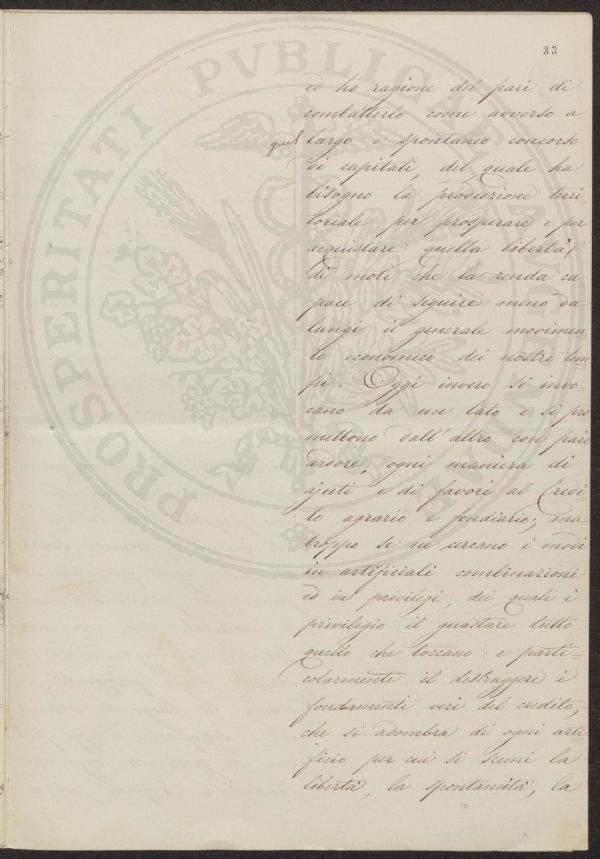 33
ed ho ragione del pari di
combatterlo come avverso a
quel largo e spontaneo concorso
di capitali, del quale ha
bisogno la produzione terri
toriale per prosperare e per
acquistare quella libertà
di moti che la renda ca
pace di seguire meno da
lungi il generale movimen
to economico dei nostri tem=
pi. Oggi invero si invo=
cano da un lato e si pro
mettono dall'altro con pari
ardore, ogni maniera di
ajuti e di favori al Credi=
to agrario e fondiario; ma
troppo se ne cercano i modi
in artificiali combinazioni
ed in privilegi, dei quali è
privilegio il guastare tutto
quello che toccano: e parti=
colarmente il distruggere i
fondamenti veri del credito,
che si adombra di ogni arti=
ficio per cui si scemi la
libertà, la spontaneità, la
PROSPERITATI PVBLICAE